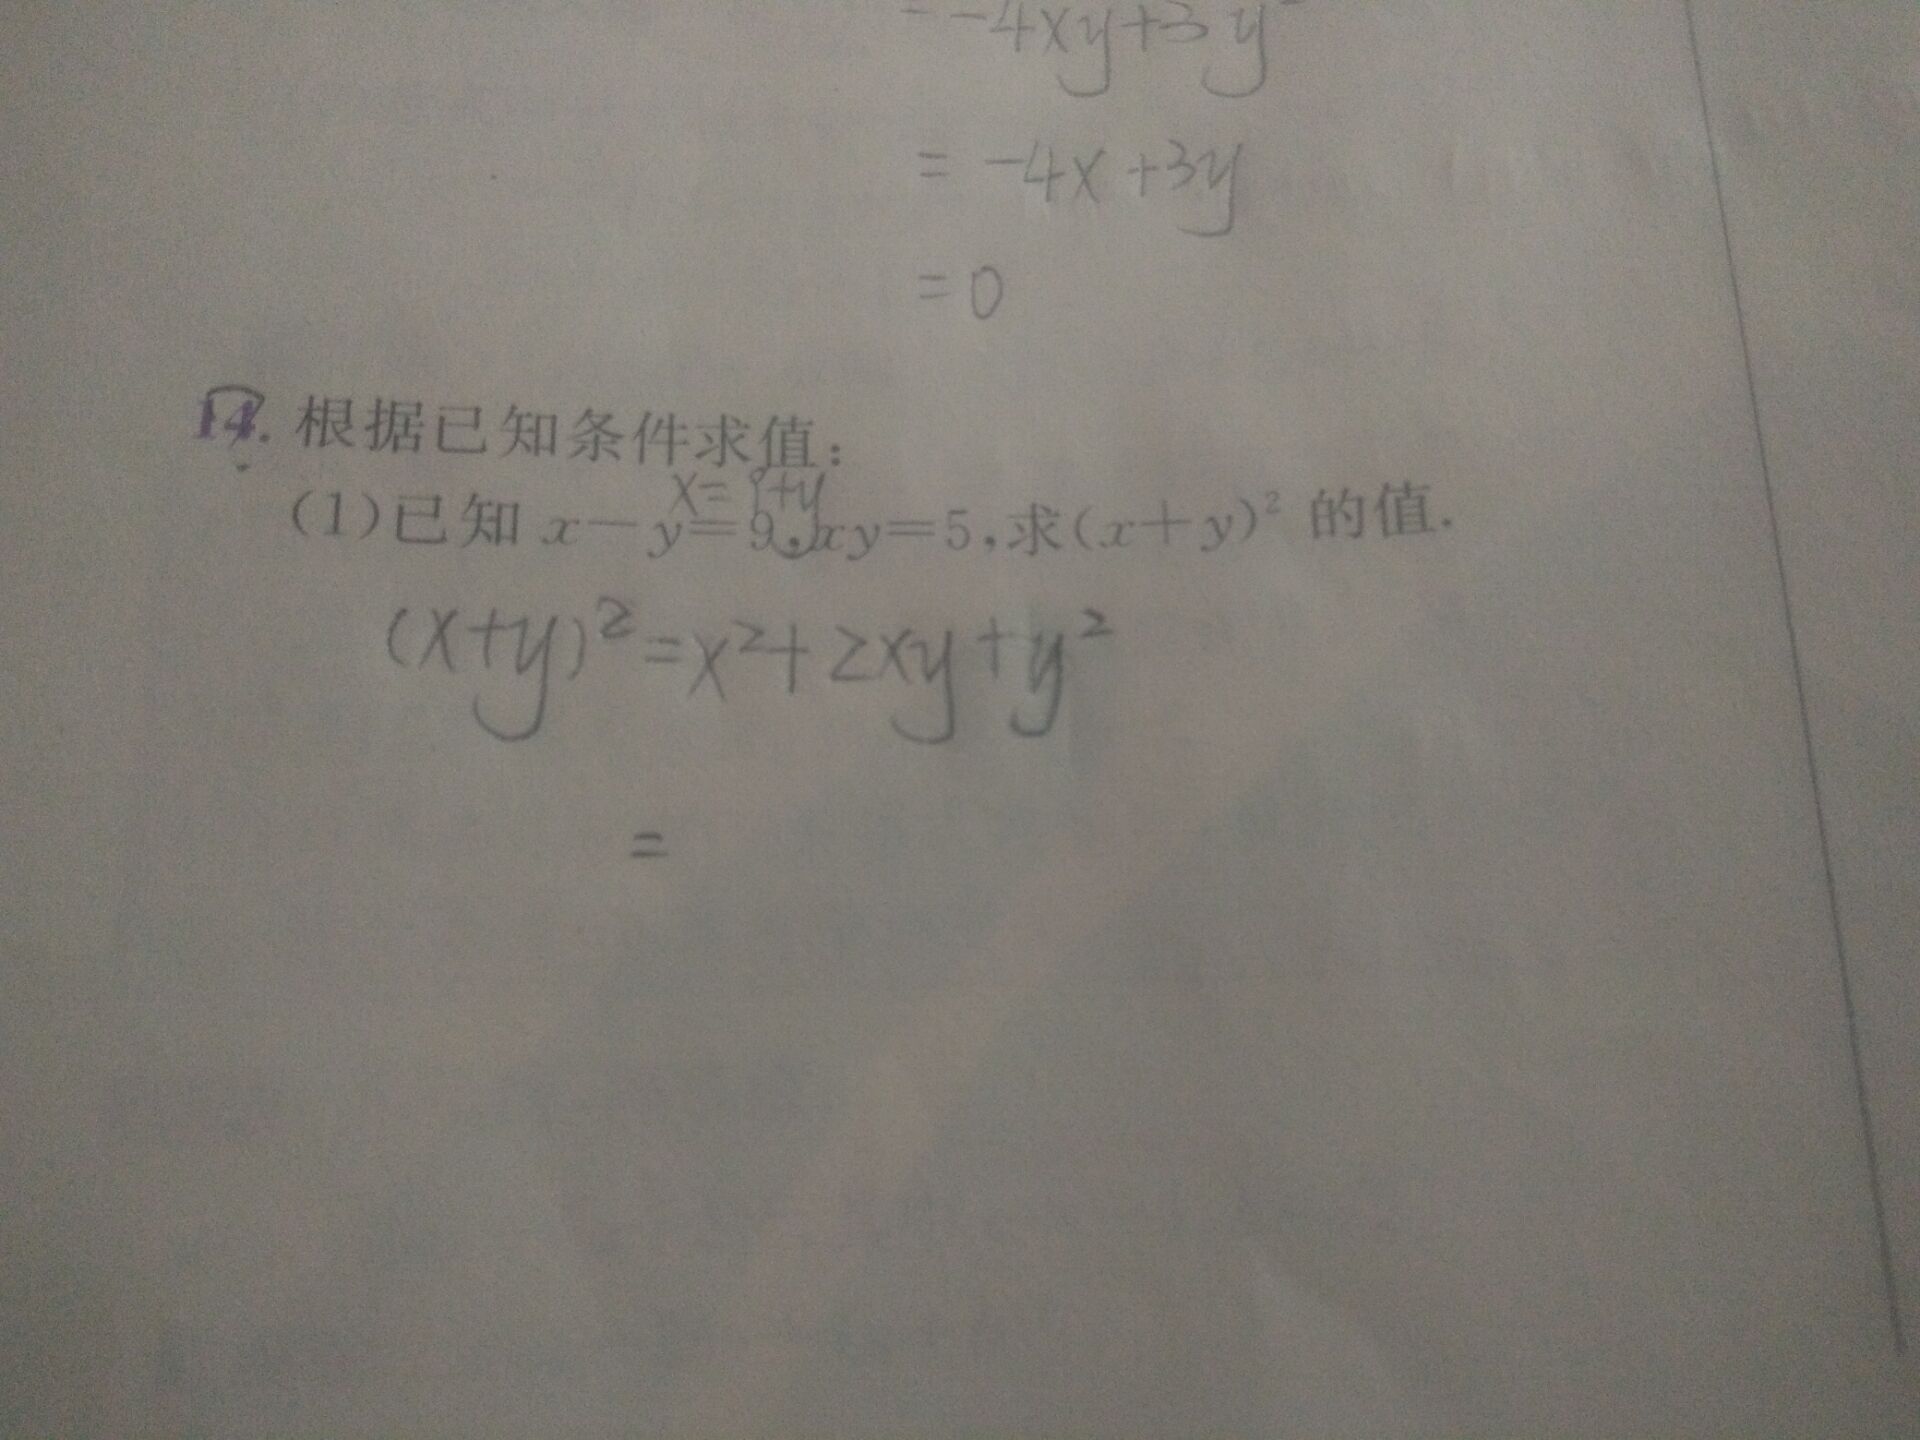 = -4xy+3y²
= -4x+3y
= 0
14. 根据已知条件求值:
x=9+y
(1)已知 x-y=9,xy=5,求(x+y)² 的值.
(x+y)²=x²+2xy+y²
=